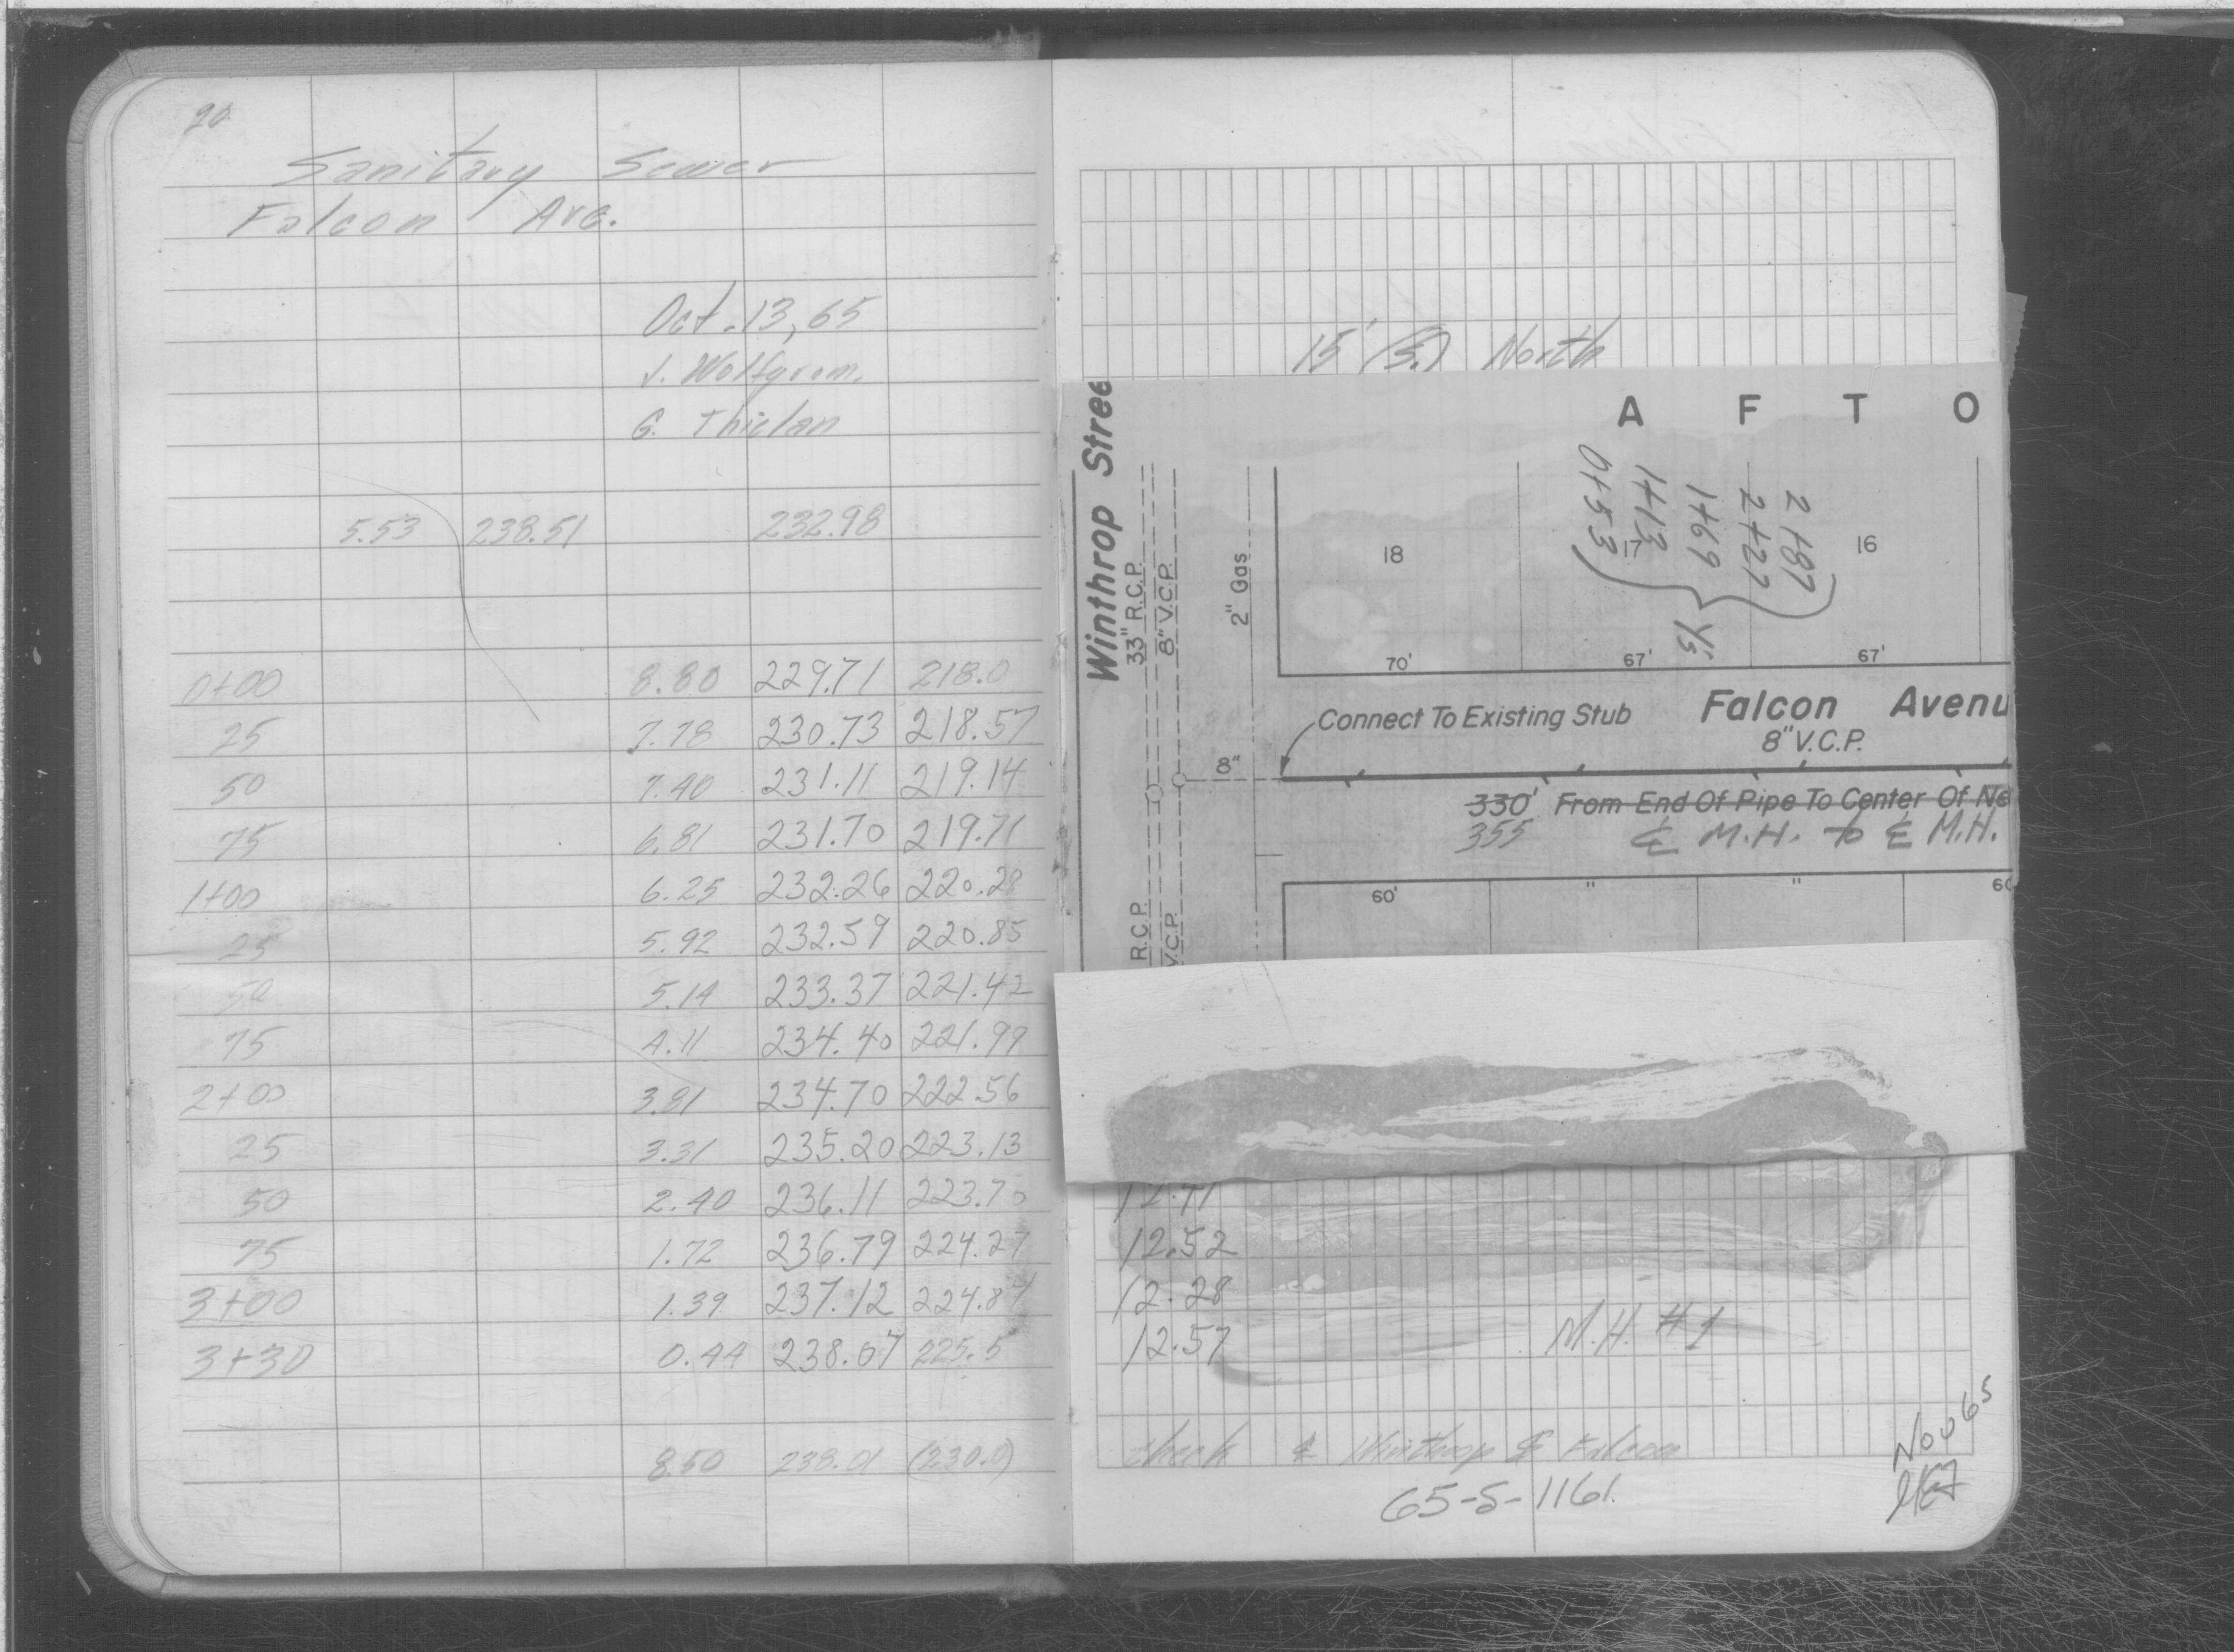 20
Sanitary Sewer
Falcon Ave.
Oct. 13, 65
J. Wolfgram
G. Thielan
5.53 238.51 232.98
0+00 8.80 229.71 218.0
25 7.78 230.73 218.57
50 7.40 231.11 219.14
75 6.81 231.70 219.71
1+00 6.25 232.26 220.28
25 5.92 232.59 220.85
50 5.14 233.37 221.42
75 4.11 234.40 221.99
2+00 3.81 234.70 222.56
25 3.31 235.20 223.13
50 2.40 236.11 223.70
75 1.72 236.79 224.27
3+00 1.39 237.12 224.84
3+30 0.44 238.07 225.5
8.50 (230.0)
15' (S.) North
A F T O
Winthrop Stree
33" R.C.P.
8" V.C.P.
2" Gas
18 17 16
2+87
2+27
1+69
1+13
0+53
Y's
70' 67' 67'
Connect To Existing Stub
Falcon Avenu
8" V.C.P.
8"
330' From End Of Pipe To Center Of Ne
355 ℄ M.H. to ℄ M.H.
60' " " 60
R.C.P.
V.C.P.
12.41
12.52
12.28
12.57
M.H. #1
check ℄ Winthrop & Falcon
65-S-1161
Nov 65